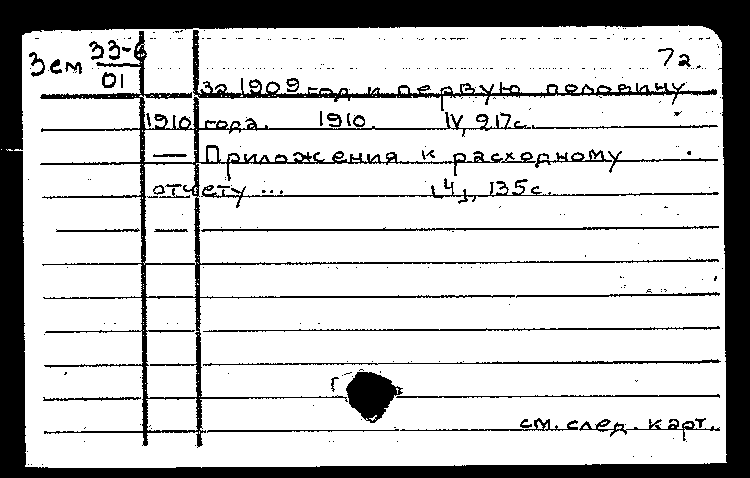 Зем 33-6 7а.
01
за 1909 год и первую половину
1910 года. 1910. IV, 217с.
— Приложения к расходному
отчету ... [4], 135с.
—
см. след. карт.